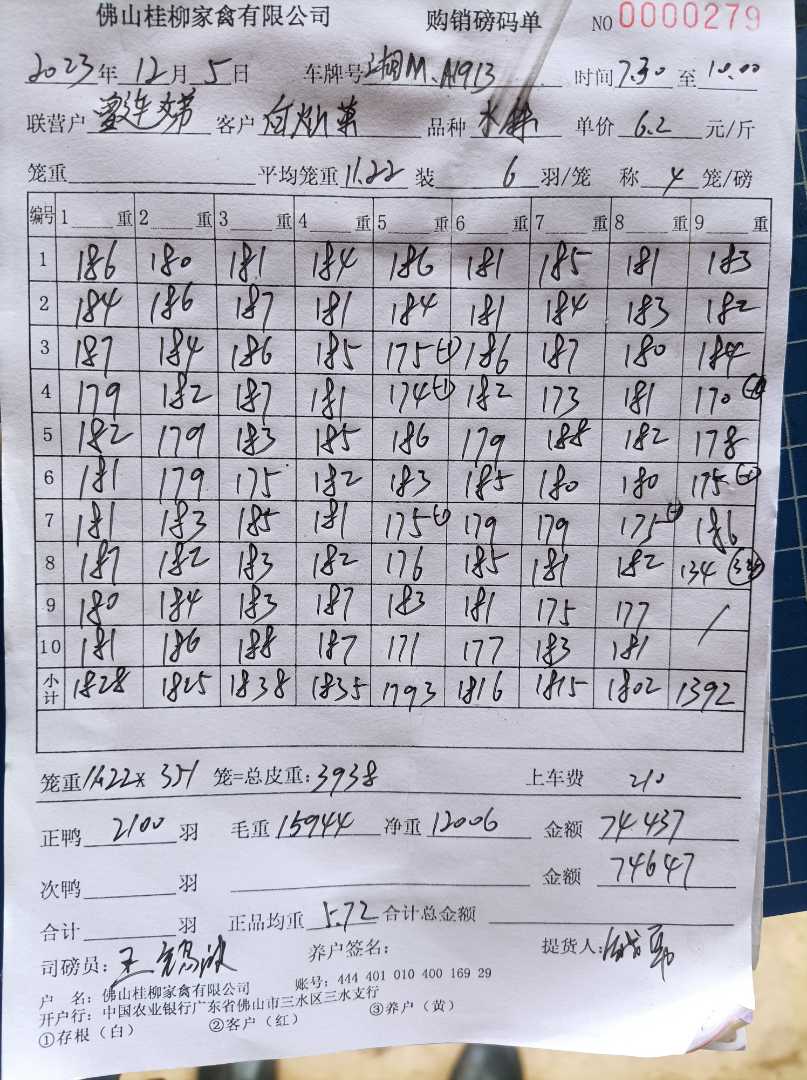 佛山桂柳家禽有限公司 购销磅码单 NO 0000279
2023年 12月 5日 车牌号 湘M.A1913 时间 7.30 至 10.00
联营户 客户 品种 水 单价 6.2 元/斤
笼重 平均笼重 11.22 装 6 羽/笼 称 4 笼/磅
编号 1 重 2 重 3 重 4 重 5 重 6 重 7 重 8 重 9 重
1 186 180 181 184 186 181 185 181 183
2 184 186 187 181 184 181 184 183 182
3 187 184 186 185 175 (-1) 186 187 180 184
4 179 182 187 181 174 (-1) 182 173 181 170
5 182 179 183 185 186 179 188 182 178
6 181 179 175 182 183 185 180 180 175
7 181 183 185 181 175 (-1) 179 179 175 186
8 187 182 183 182 176 185 181 182 134
9 180 184 183 187 183 181 175 177 /
10 181 186 188 187 171 177 183 181
小计 1828 1825 1838 1835 1793 1816 1815 1802 1392
笼重 11.22 × 351 笼=总皮重: 3938 上车费 210
正鸭 2100 羽 毛重 15944 净重 12006 金额 74437
次鸭 羽 金额 74647
合计 羽 正品均重 5.72 合计总金额
司磅员: 王 养户签名: 提货人:
户 名: 佛山桂柳家禽有限公司 账号: 444 401 010 400 169 29
开户行: 中国农业银行广东省佛山市三水区三水支行
①存根(白) ②客户(红) ③养户(黄)